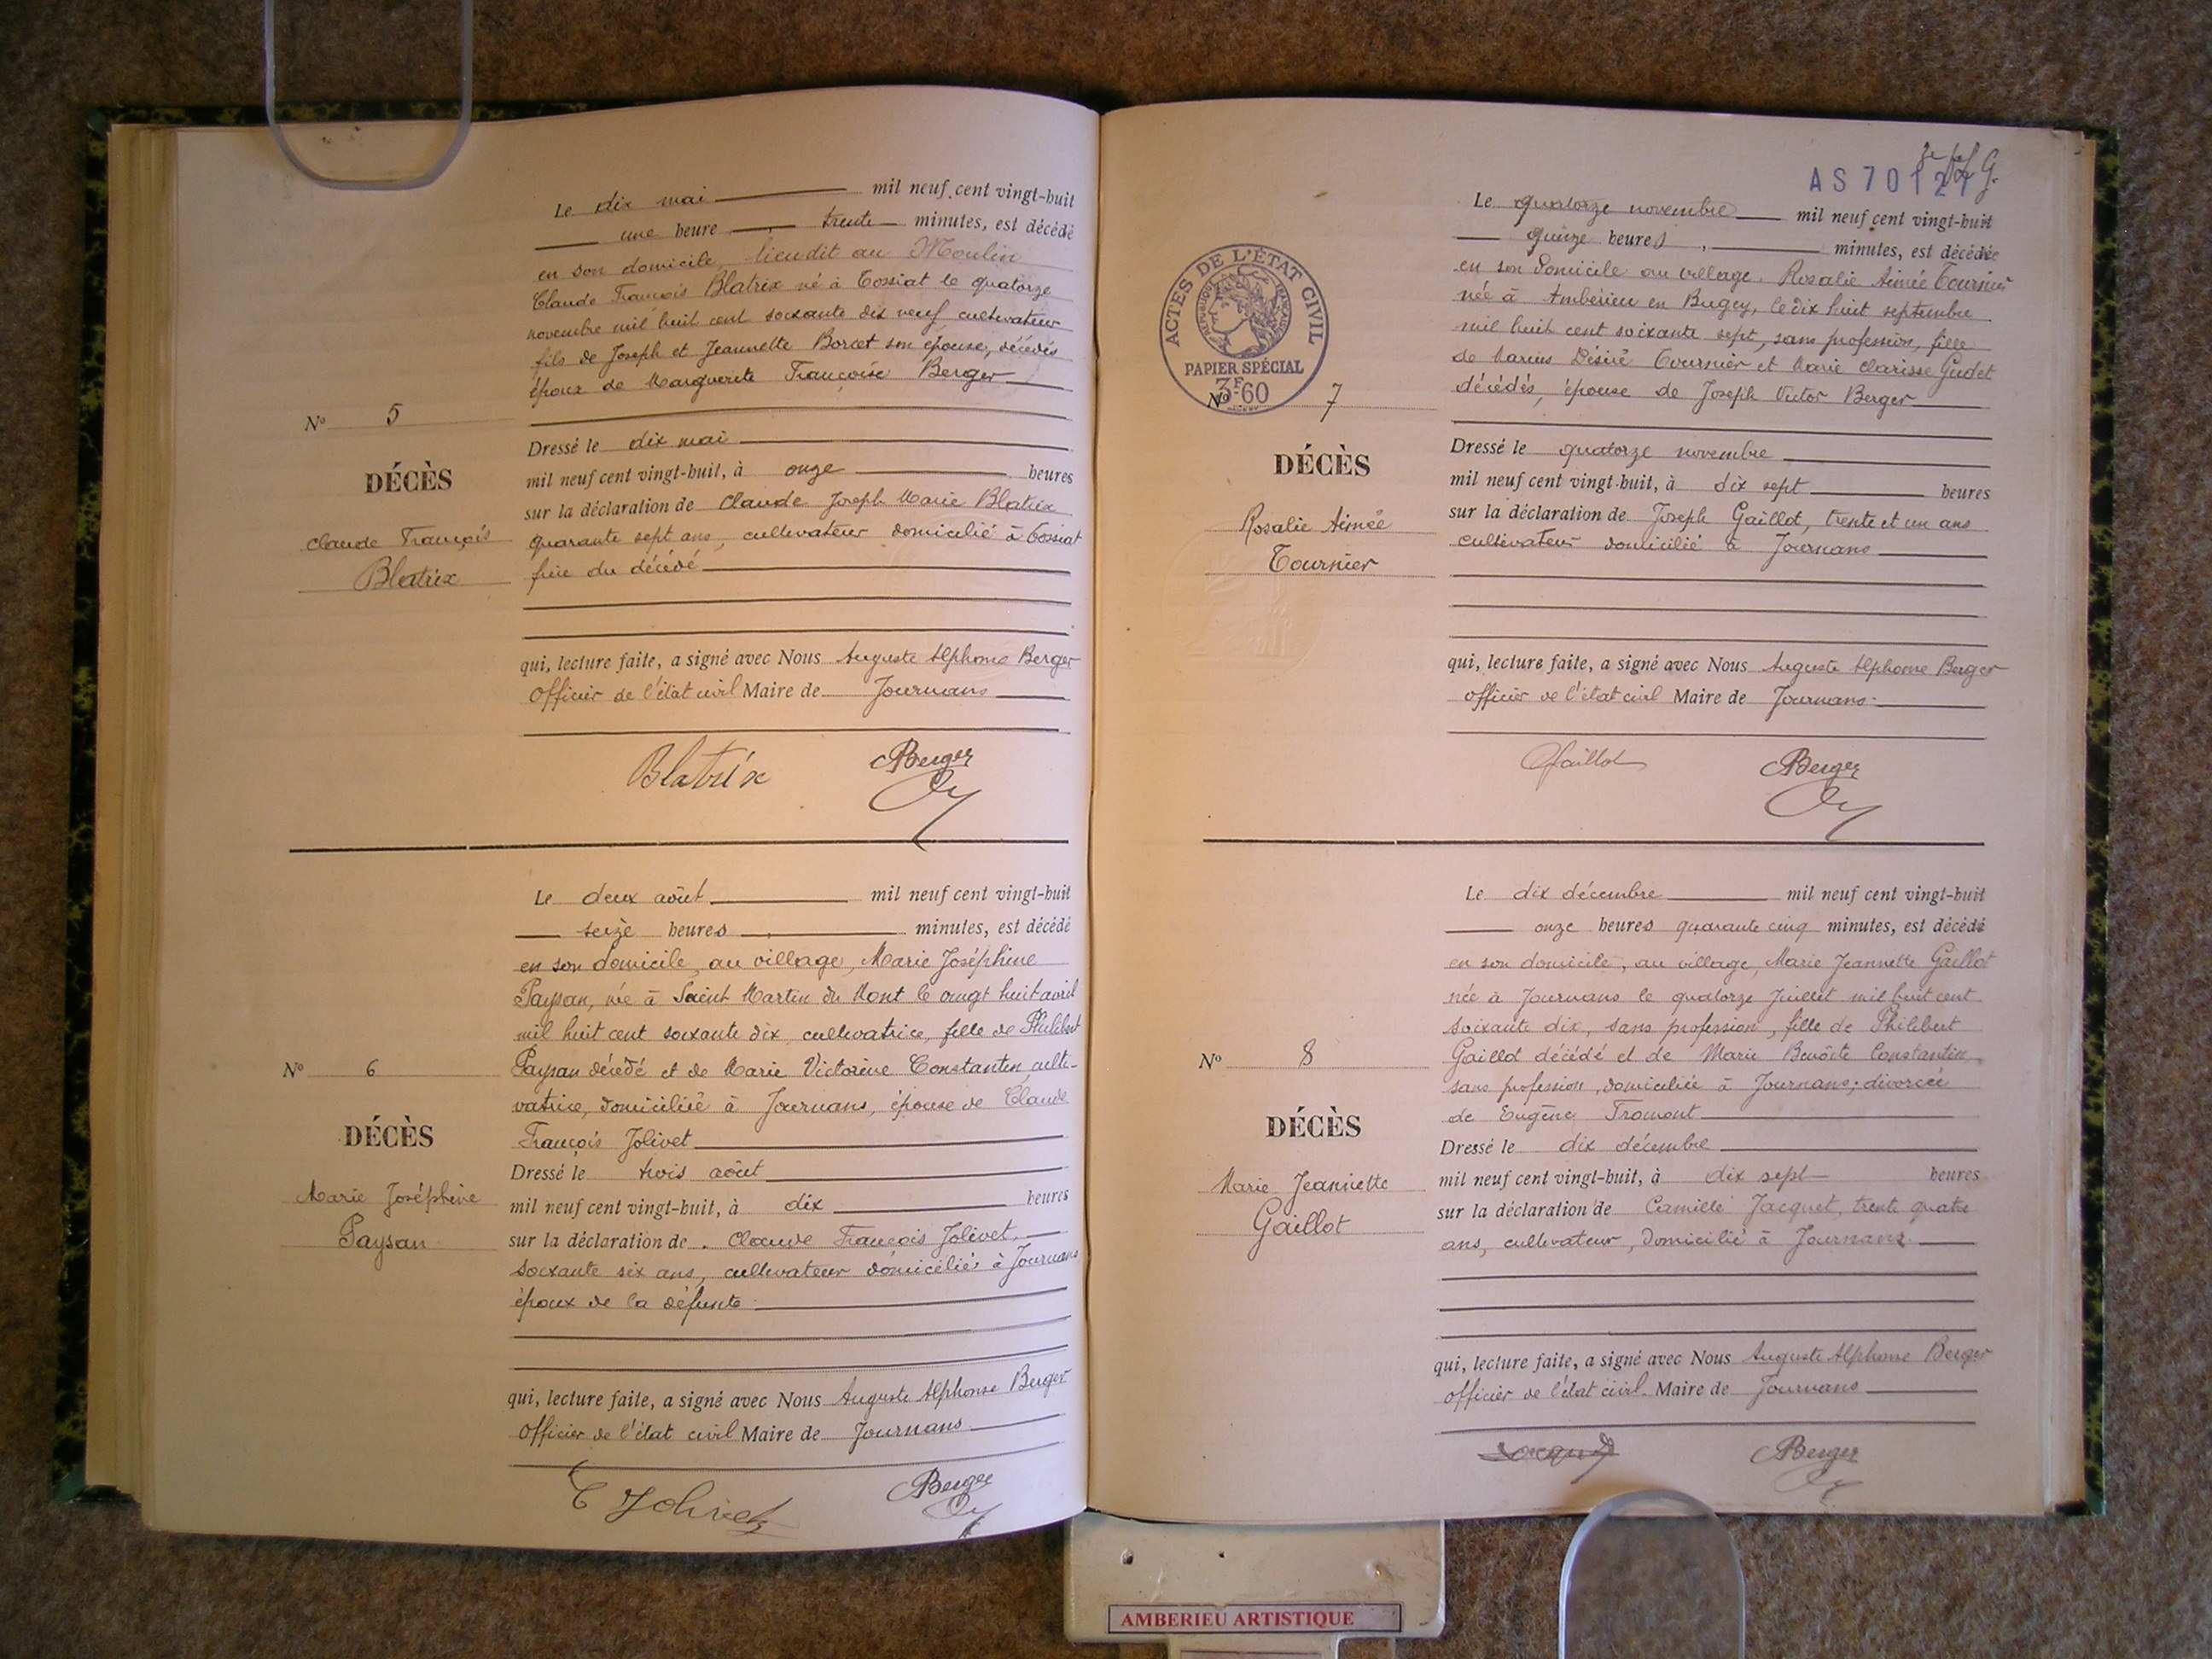 Le dix mai mil neuf cent vingt-huit
une heure trente minutes, est décédé
en son domicile, lieu dit au Moulin
Claude François Blatrix né à Tossiat le quatorze
novembre mil huit cent soixante dix neuf cultivateur
fils de Joseph et Jeannette Borcet son épouse, décédés
époux de Marguerite Françoise Berger
N° 5
DÉCÈS
Claude François
Blatrix
Dressé le dix mai
mil neuf cent vingt-huit, à onze heures
sur la déclaration de Claude Joseph Marie Blatrix
quarante sept ans, cultivateur domicilié à Tossiat
frère du décédé
qui, lecture faite, a signé avec Nous Auguste Alphonse Berger
Officier de l'état civil Maire de Journans
Blatrix ABerger
Le deux août mil neuf cent vingt-huit
seize heures minutes, est décédé
en son domicile, au village, Marie Joséphine
Paysan, née à Saint Martin du Mont le vingt huit avril
mil huit cent soixante dix, cultivatrice, fille de Philibert
Paysan décédé et de Marie Victorine Constantin, culti-
vatrice, domiciliée à Journans, épouse de Claude
François Jolivet
N° 6
DÉCÈS
Marie Joséphine
Paysan
Dressé le trois août
mil neuf cent vingt-huit, à dix heures
sur la déclaration de Claude François Jolivet,
soixante six ans, cultivateur domicilié à Journans
époux de la défunte
qui, lecture faite, a signé avec Nous Auguste Alphonse Berger
Officier de l'état civil Maire de Journans
Jolivet ABerger
AS 70127
Le quatorze novembre mil neuf cent vingt-huit
quinze heures, minutes, est décédée
en son domicile au village, Rosalie Aimée Tournier
née à Ambérieu en Bugey, le dix huit septembre
mil huit cent soixante sept, sans profession, fille
de Marius Désiré Tournier et Marie Clarisse Gudet
décédés, épouse de Joseph Victor Berger
ACTES DE L'ÉTAT CIVIL
RÉPUBLIQUE FRANÇAISE
PAPIER SPÉCIAL
3F60
N° 7
DÉCÈS
Rosalie Aimée
Tournier
Dressé le quatorze novembre
mil neuf cent vingt-huit, à dix sept heures
sur la déclaration de Joseph Gaillot, trente et un ans
cultivateur domicilié à Journans
qui, lecture faite, a signé avec Nous Auguste Alphonse Berger
officier de l'état civil Maire de Journans
Gaillot ABerger
Le dix décembre mil neuf cent vingt-huit
onze heures quarante cinq minutes, est décédé
en son domicile, au village, Marie Jeannette Gaillot
née à Journans le quatorze Juillet mil huit cent
soixante dix, sans profession, fille de Philibert
Gaillot décédé et de Marie Benoîte Constantin
sans profession, domiciliée à Journans; divorcée
de Eugène Tromont
N° 8
DÉCÈS
Marie Jeannette
Gaillot
Dressé le dix décembre
mil neuf cent vingt-huit, à dix sept heures
sur la déclaration de Camille Jacquet, trente quatre
ans, cultivateur, domicilié à Journans
qui, lecture faite, a signé avec Nous Auguste Alphonse Berger
officier de l'état civil Maire de Journans
Jacquet ABerger
AMBERIEU ARTISTIQUE